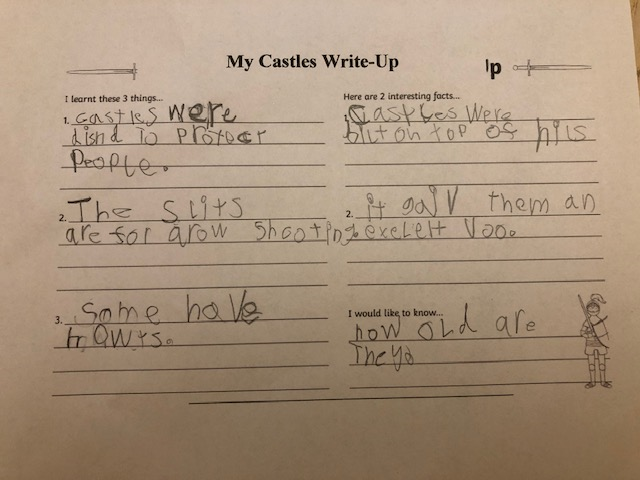 My Castles Write-Up
Up
I learnt these 3 things...
1. castles were
disnd to protect
People.
2. The Slits
are for arow shooting.
3. Some have
Here are 2 interesting facts...
1. Castles were
bilt on top of hils
2. it gaiv them an
exelelt Voo.
I would like to know...
how old are
They